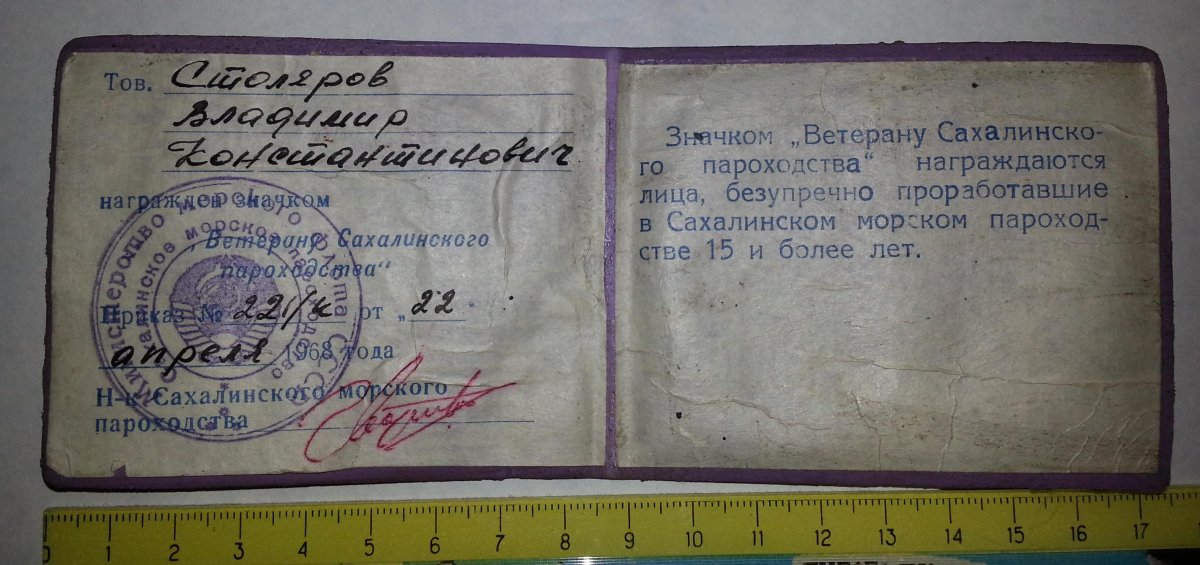 Тов. Столяров
Владимир
Константинович
награжден значком
„Ветерану Сахалинского
пароходства“
Приказ № 221/к от „22
апреля 1968 года
Н-к Сахалинского морского
пароходства
Министерство морского флота СССР
Сахалинское морское пароходство
Значком „Ветерану Сахалинско-
го пароходства“ награждаются
лица, безупречно проработавшие
в Сахалинском морском пароход-
стве 15 и более лет.
0 1 2 3 4 5 6 7 8 9 10 11 12 13 14 15 16 17